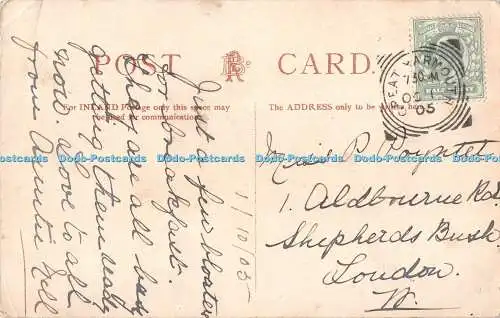 POST CARD.
For INLAND Postage only this space may
be used for communication.
The ADDRESS only to be written here.
Just a few bloaters
for breakfast.
They are all busy
getting them ready
now. Love to all
from Auntie Nell
1/10/05
GREAT YARMOUTH
7 30 PM
OC
05
Miss P.
1. Aldbourne Rd.
Shepherds Bush
London.
W.
Dodo-Postcards Dodo-Postcards Dodo-Postcards Dodo-Postcards Dodo-Postcards Dodo-Postcards